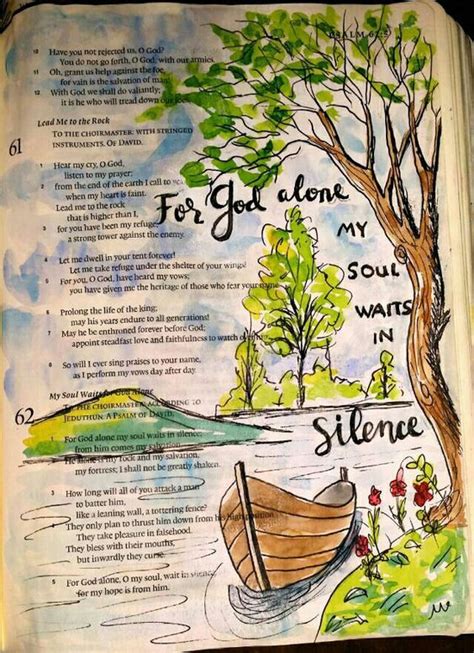 PSALM 62:5
10 Have you not rejected us, O God?
You do not go forth, O God, with our armies.
11 Oh, grant us help against the foe,
for vain is the salvation of man!
12 With God we shall do valiantly;
it is he who will tread down our foes.
Lead Me to the Rock
61 TO THE CHOIRMASTER: WITH STRINGED
INSTRUMENTS. OF DAVID.
1 Hear my cry, O God,
listen to my prayer;
2 from the end of the earth I call to you
when my heart is faint.
Lead me to the rock
that is higher than I,
3 for you have been my refuge,
a strong tower against the enemy.
For God alone
MY
SOUL
WAITS
IN
Silence
4 Let me dwell in your tent forever!
Let me take refuge under the shelter of your wings!
5 For you, O God, have heard my vows;
you have given me the heritage of those who fear your name.
6 Prolong the life of the king;
may his years endure to all generations!
7 May he be enthroned forever before God;
appoint steadfast love and faithfulness to watch over him!
8 So will I ever sing praises to your name,
as I perform my vows day after day.
My Soul Waits for God Alone
62 TO THE CHOIRMASTER: ACCORDING TO
JEDUTHUN. A PSALM OF DAVID.
1 For God alone my soul waits in silence;
from him comes my salvation.
2 He alone is my rock and my salvation,
my fortress; I shall not be greatly shaken.
3 How long will all of you attack a man
to batter him,
like a leaning wall, a tottering fence?
4 They only plan to thrust him down from his high position.
They take pleasure in falsehood.
They bless with their mouths,
but inwardly they curse.
5 For God alone, O my soul, wait in silence,
for my hope is from him.